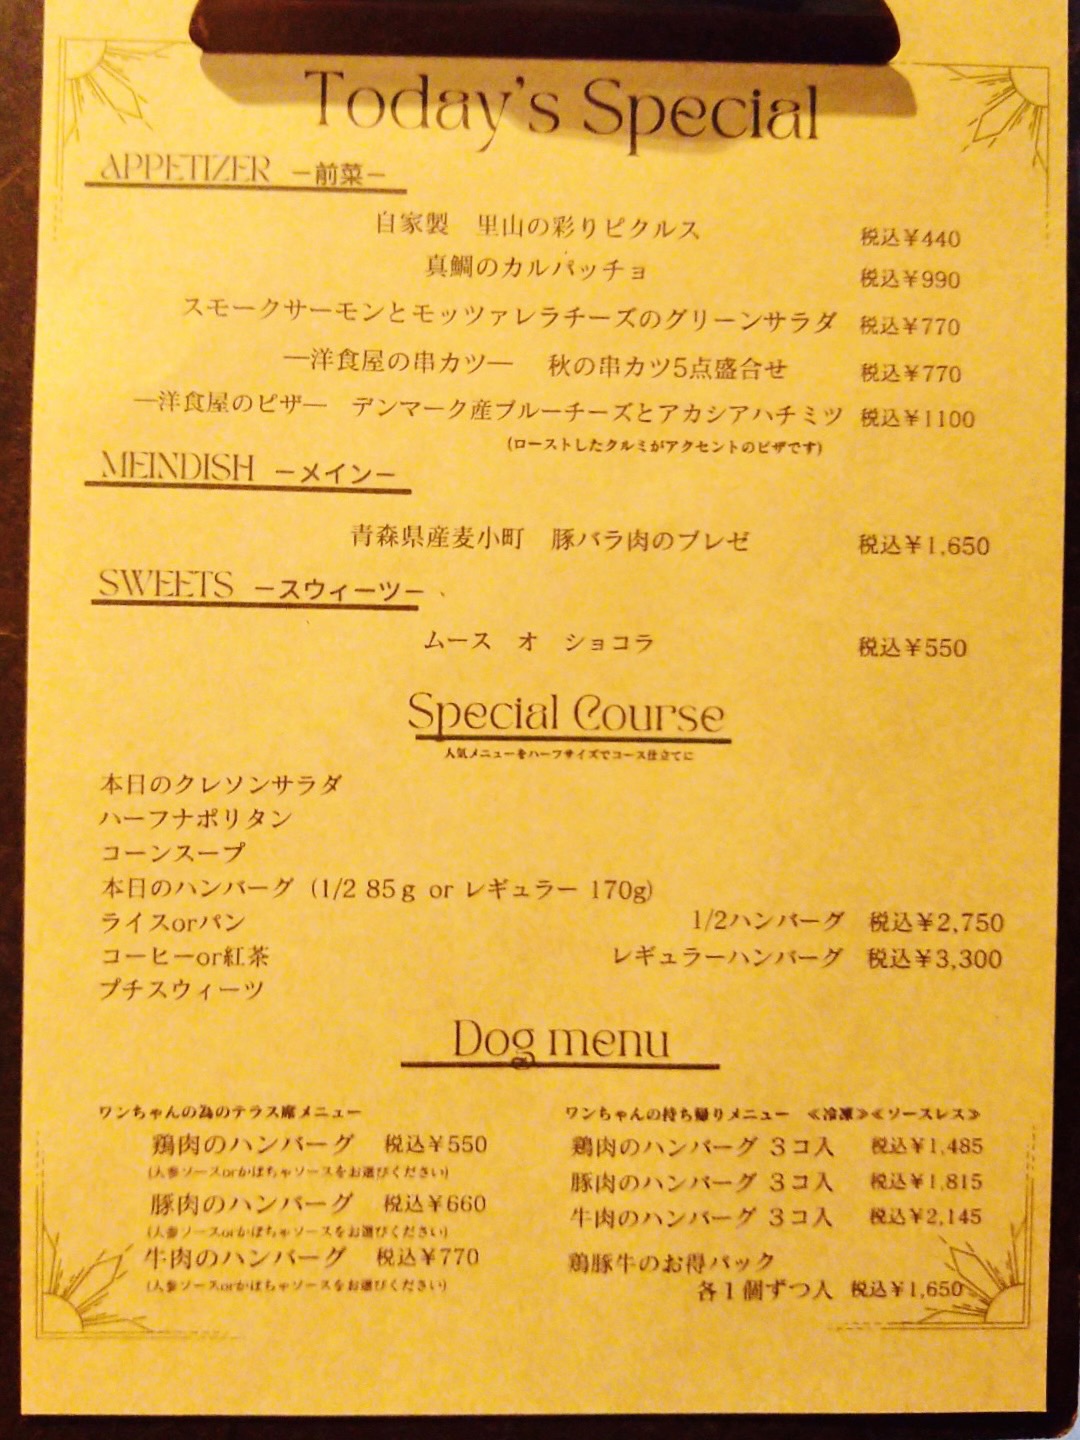 Today's Special
APPETIZER －前菜－
自家製　里山の彩りピクルス　税込￥440
真鯛のカルパッチョ　税込￥990
スモークサーモンとモッツァレラチーズのグリーンサラダ　税込￥770
―洋食屋の串カツ―　秋の串カツ5点盛合せ　税込￥770
―洋食屋のピザ―　デンマーク産ブルーチーズとアカシアハチミツ　税込￥1100
(ローストしたクルミがアクセントのピザです)
MEINDISH －メイン－
青森県産麦小町　豚バラ肉のブレゼ　税込￥1,650
SWEETS －スウィーツ－
ムース　オ　ショコラ　税込￥550
Special Course
人気メニューをハーフサイズでコース仕立てに
本日のクレソンサラダ
ハーフナポリタン
コーンスープ
本日のハンバーグ（1/2 85ｇ or レギュラー 170g)
ライスorパン
1/2ハンバーグ　税込￥2,750
コーヒーor紅茶
レギュラーハンバーグ　税込￥3,300
プチスウィーツ
Dog menu
ワンちゃんの為のテラス席メニュー
鶏肉のハンバーグ　税込￥550
(人参ソースorかぼちゃソースをお選びください)
豚肉のハンバーグ　税込￥660
(人参ソースorかぼちゃソースをお選びください)
牛肉のハンバーグ　税込￥770
(人参ソースorかぼちゃソースをお選びください)
ワンちゃんの持ち帰りメニュー　≪冷凍≫≪ソースレス≫
鶏肉のハンバーグ ３コ入　税込￥1,485
豚肉のハンバーグ ３コ入　税込￥1,815
牛肉のハンバーグ ３コ入　税込￥2,145
鶏豚牛のお得パック
各１個ずつ入　税込￥1,650